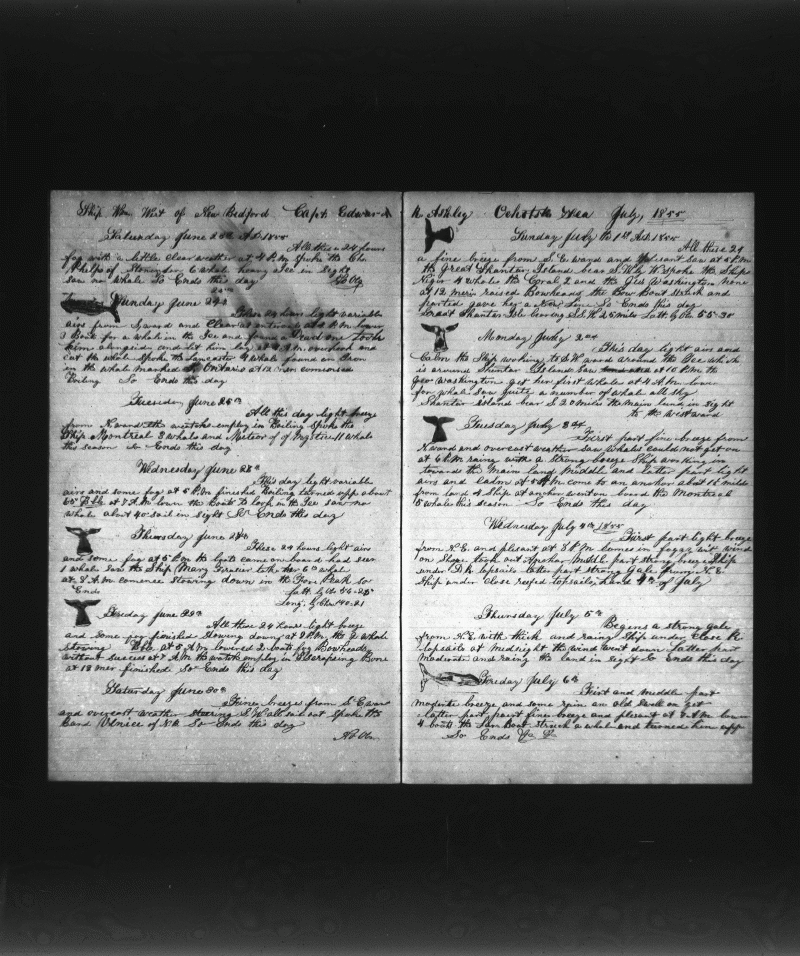 Ship Wm Wirt of New Bedford Capt. Edward
Saturday June 23d AD 1855
All these 24 hours
fog with a little clear weather at 4 P.M spoke the Ch
Phelps of Stonington 6 whale heavy Ice in Sight
saw no whale So Ends this day No Obs
24th
Sunday June 24th
These 24 hours light variable
airs from S,ward and Clear at intervals at 2 P.M lower
3 Boat for a whale in the Ice and found a Dead one took
him alongside and let him lay at 4 A.M. overhook and
cut the whale Spoke the Lancaster 4 Whale found an Iron
in the whale marked Ontario at 12 mer comenced
Boiling So Ends this day
Tuesday June 25th
All this day light breeze
from N.ward the watch employ in Boiling Spoke the
Ship Montreal 3 whales and Meteor of Mystic 11 whale
this season So Ends this day
Wednesday June 26th
This day light variable
airs and some fog at 5 P.M finished Boiling turned up about
65 Bbls at 7 A.M lower the Boats to look in the Ice saw no
whale about 40 sail in sight So Ends this day
Thursday June 28th
These 24 hours light airs
and some fog at 5 P.M the boats came on board had seen
1 whale saw the Ship Mary Frazier take her 6th whale
at 8 A.M comence stowing down in the Fore Peak So
Ends Latt by Obs 54-25
Long. by Chr 140-21
Friday June 29th
All these 24 hours light breeze
and some fog finished stowing down at 9 P.M, the whale
stowing Bbls at 5 A.M lowered 2 boats for Bowheads
without success at 7 A.M the watch employ in Scrapeing Bone
at 12 mer finished So Ends this day
Saturday June 30th
Fine breeze from S. Eward
and overcast weather steering S.W all sail out Spoke the
Cand Venice of N.B. So Ends this day
No Obs
R. Ashley Ochotsk Sea July, 1855
Sunday July th 1st AD. 1855
All these 24
a fine breeze from S. Eward and plesant saw at 4 P.M
the Great Shantar Island bear S.W by W spoke the Ships
Niger 4 whales the Coral 2 and the Geo Washington none
at 12 merin raised Bowheads the Bow Boat struck and
parted gave her a new Line So Ends this day
Great Shantar Isle bearing S.S.W 25 miles Latt. by Ob. 55-30
Monday July 2nd
This day light airs and
Calm the Ship working to S.W.ward around the Ice which
is around Shantar Island saw at 10 P.M the
Geo Washington get her first Whale at 4 A.M. lower
for whale saw quite a number of whale all sky
Shantar island bear S. 20 miles the main land in sight
to the westward
Tuesday July 3d
First part fine breeze from
N,ward and overcast weather saw whales could not get on
at 6 P.M rainy with a strong breeze Ship working in
toward the Main land Middle and latter part light
airs and calm at 5 A.M come to an anchor about 15 miles
from land 4 Ship at anchor went on board the Montreal
5 whales this season So Ends this day
Wednesday July 4th 1855
First part light breeze
from N.E. and plesant at 3 P.M comes in foggy with wind
on Shore took out Anchor Middle part strong breeze Ship
under D.R. topsails latter part strong Gale from N.E.
Ship under close reefed topsails, hard 4th of July
Thursday July 5th
Begins a strong gale
from N.E. with thick and rainy Ship under close R.
topsails at midnight the wind went down latter part
moderate and rainy the land in sight So Ends this day
Friday July 6th
First and middle part
moderate breeze and some rain an old Duck on get
latter part paint fine breeze and plesant at 7 A.M lower
4 boats the Boat struck a whale and turned him up
So Ends